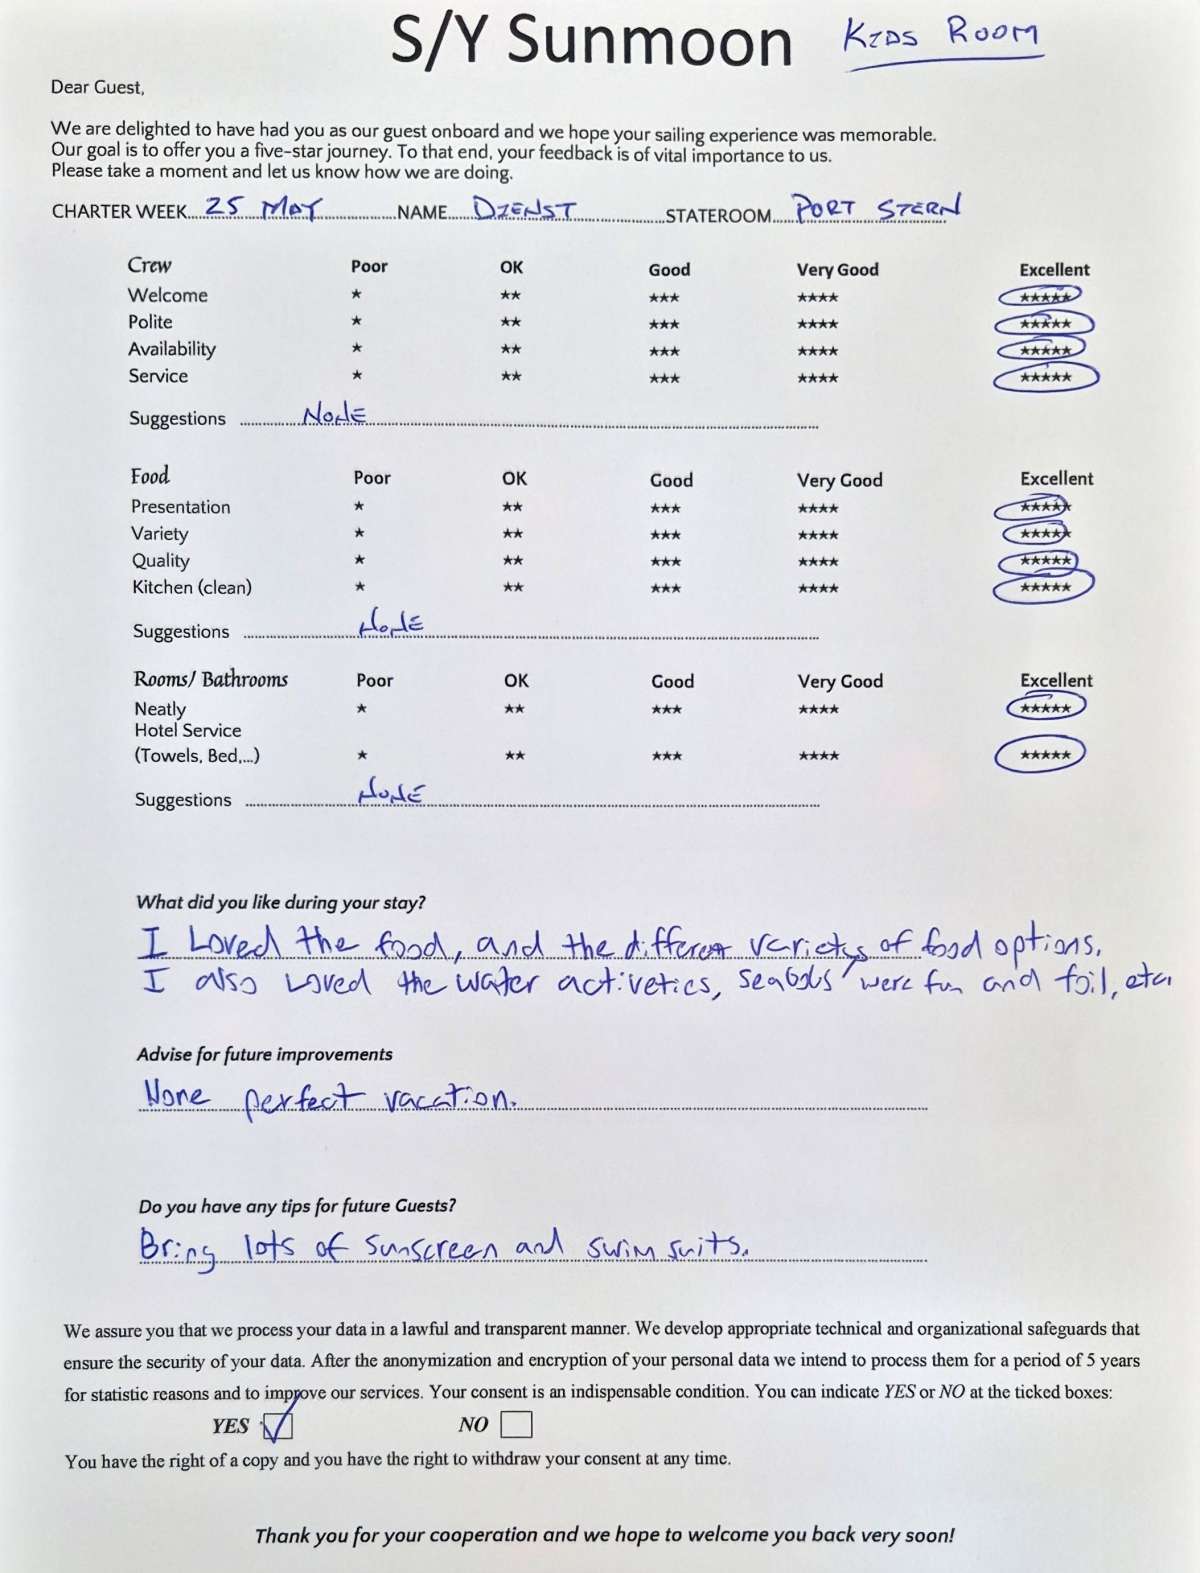 S/Y Sunmoon KIDS ROOM
Dear Guest,
We are delighted to have had you as our guest onboard and we hope your sailing experience was memorable.
Our goal is to offer you a five-star journey. To that end, your feedback is of vital importance to us.
Please take a moment and let us know how we are doing.
CHARTER WEEK 25 MAY NAME DIENST STATEROOM PORT STERN
Crew Poor OK Good Very Good Excellent
Welcome ★ ★★ ★★★ ★★★★ ★★★★★
Polite ★ ★★ ★★★ ★★★★ ★★★★★
Availability ★ ★★ ★★★ ★★★★ ★★★★★
Service ★ ★★ ★★★ ★★★★ ★★★★★
Suggestions NONE
Food Poor OK Good Very Good Excellent
Presentation ★ ★★ ★★★ ★★★★ ★★★★★
Variety ★ ★★ ★★★ ★★★★ ★★★★★
Quality ★ ★★ ★★★ ★★★★ ★★★★★
Kitchen (clean) ★ ★★ ★★★ ★★★★ ★★★★★
Suggestions NONE
Rooms/ Bathrooms Poor OK Good Very Good Excellent
Neatly ★ ★★ ★★★ ★★★★ ★★★★★
Hotel Service
(Towels, Bed,...) ★ ★★ ★★★ ★★★★ ★★★★★
Suggestions NONE
What did you like during your stay?
I Loved the food, and the different varietys of food options.
I also Loved the water activeties, seabobs were fun and foil, etc.
Advise for future improvements
None perfect vacation.
Do you have any tips for future Guests?
Bring lots of sunscreen and swim suits.
We assure you that we process your data in a lawful and transparent manner. We develop appropriate technical and organizational safeguards that
ensure the security of your data. After the anonymization and encryption of your personal data we intend to process them for a period of 5 years
for statistic reasons and to improve our services. Your consent is an indispensable condition. You can indicate YES or NO at the ticked boxes:
YES NO
You have the right of a copy and you have the right to withdraw your consent at any time.
Thank you for your cooperation and we hope to welcome you back very soon!